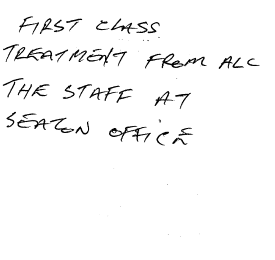 FIRST CLASS
TREATMENT FROM ALL
THE STAFF AT
SEATON OFFICE